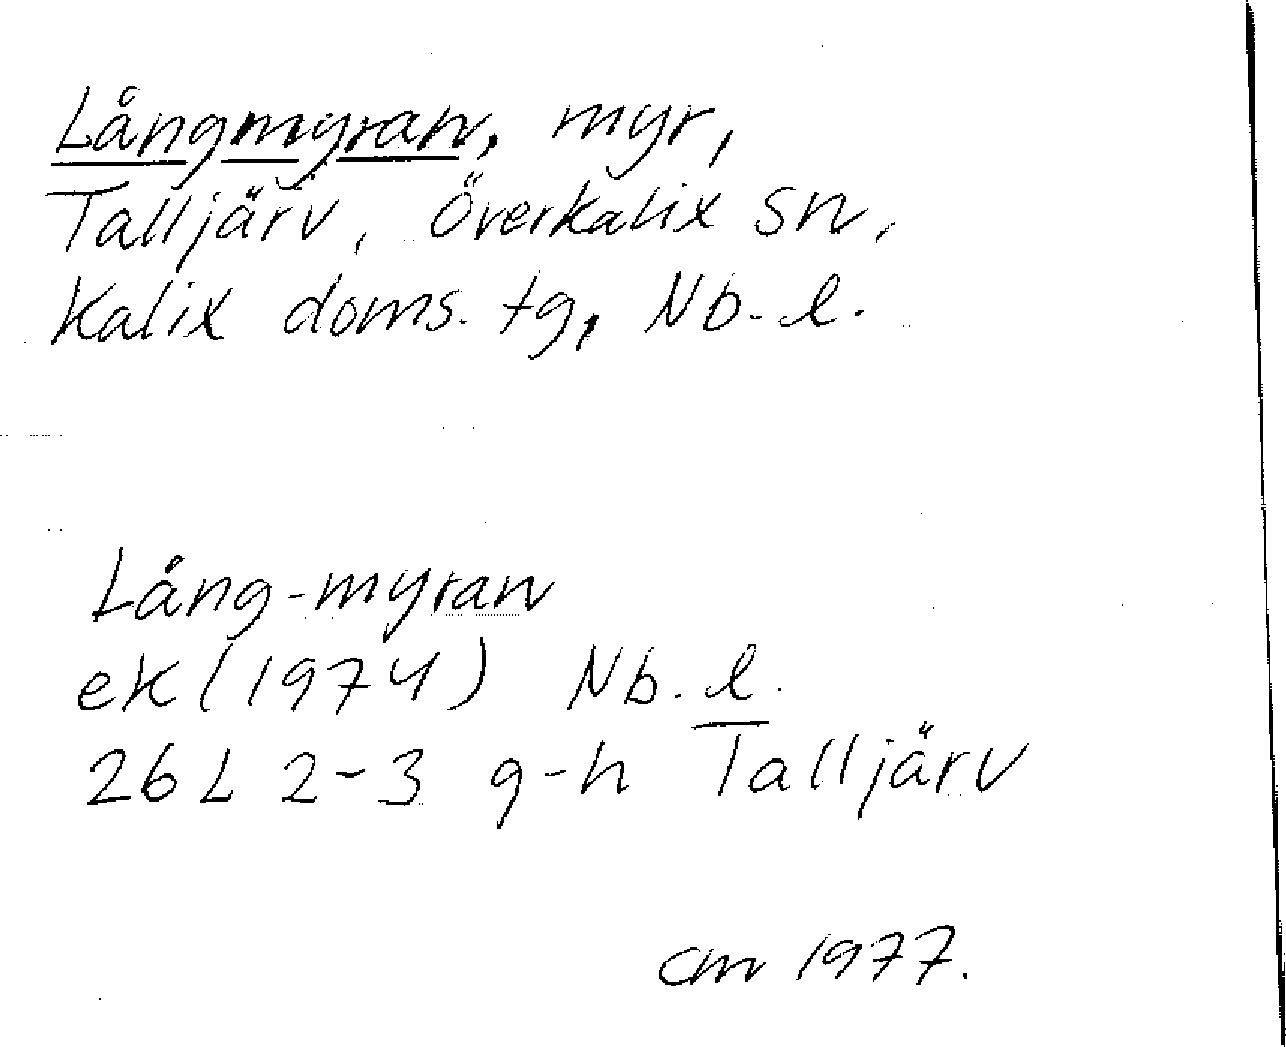 Långmyran, myr,
Talljärv, Överkalix sn,
Kalix doms. tg, Nb. l.
Lång-myran
ek (1974) Nb. l.
26L 2-3 g-h Talljärv
cm 1977.